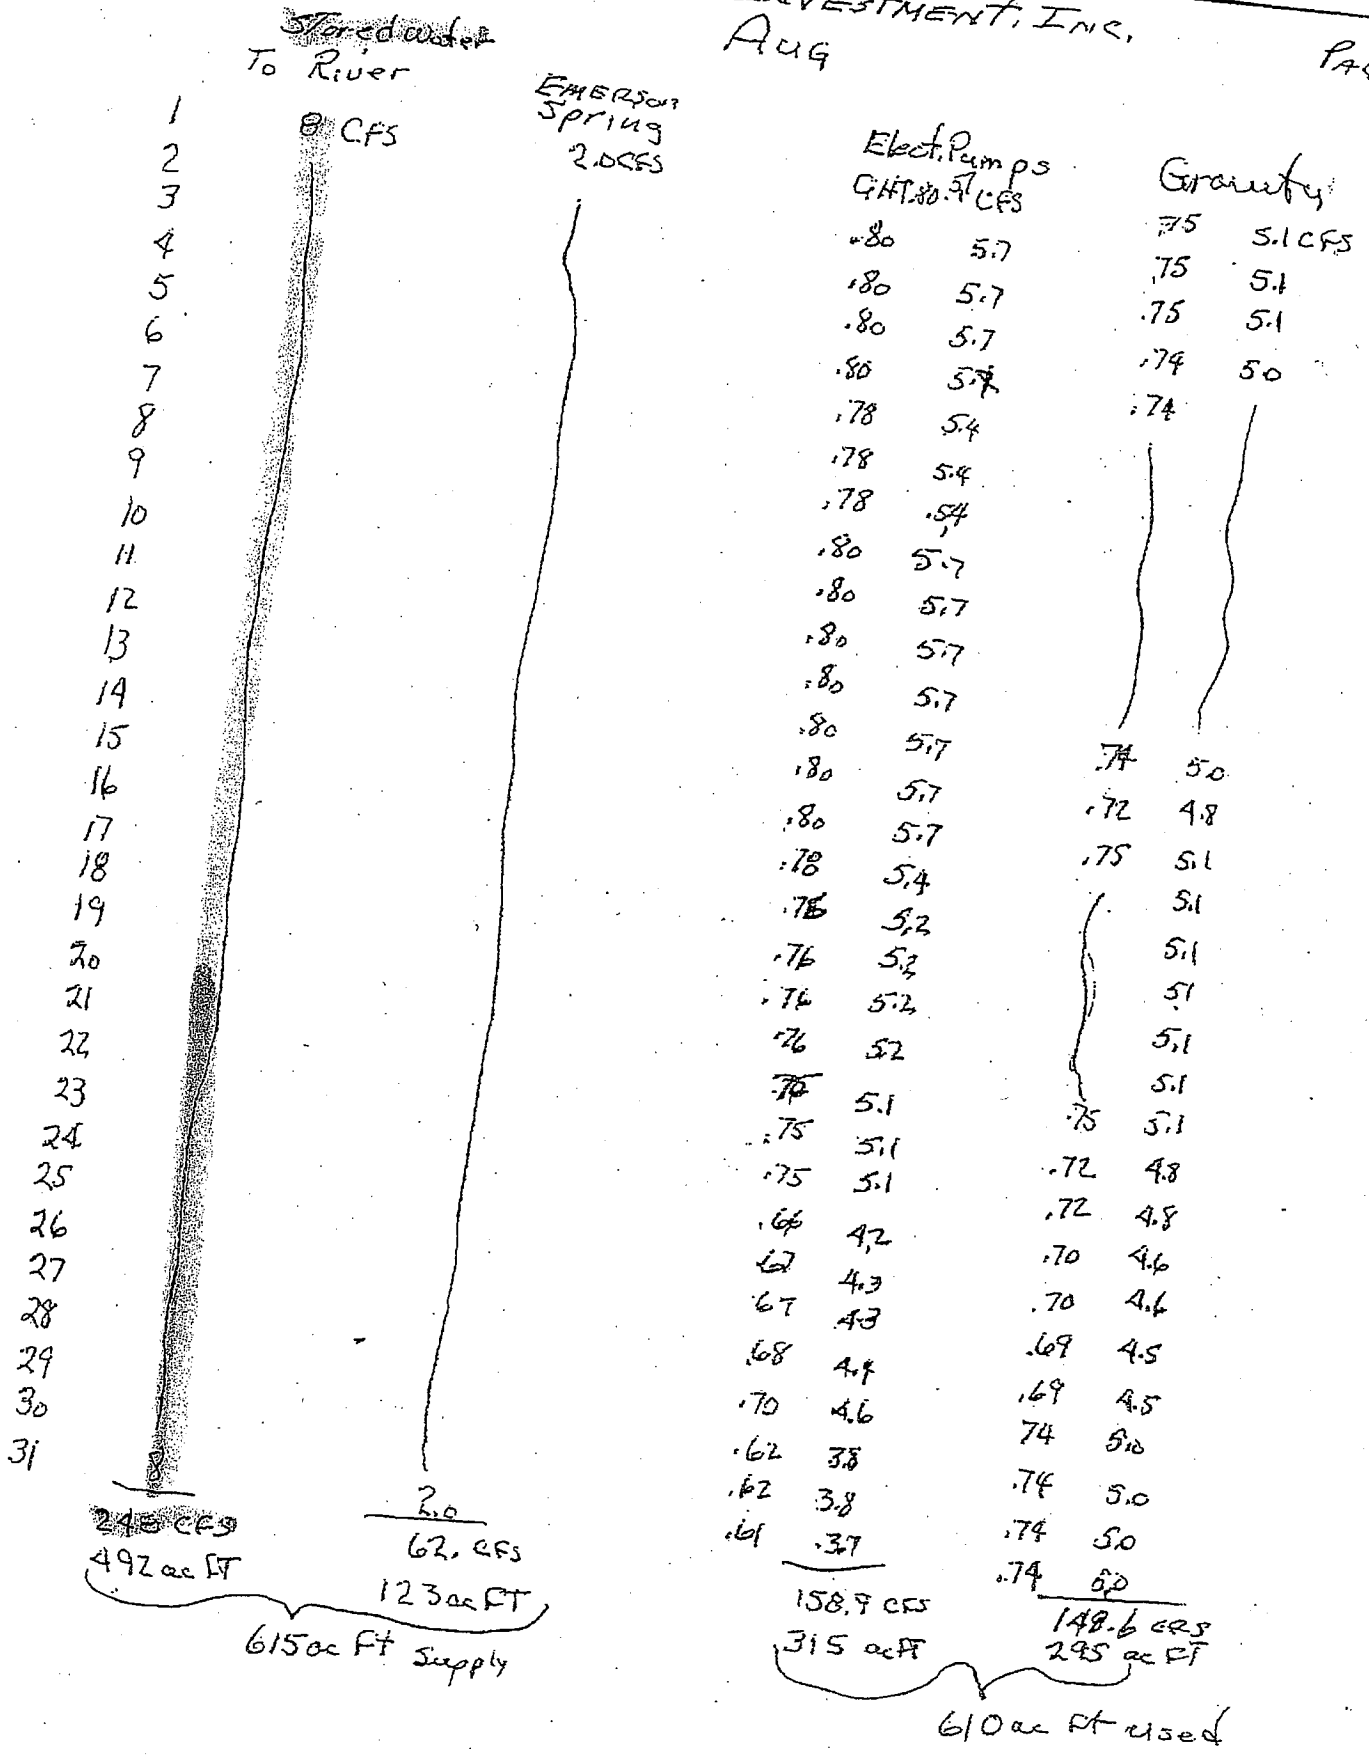 VESTMENT, INC.
Aug
Stored water
To River
8 CFS
1
2
3
4
5
6
7
8
9
10
11
12
13
14
15
16
17
18
19
20
21
22
23
24
25
26
27
28
29
30
31
8
248 CFS
492 ac FT
Emerson
Spring
2.0 CFS
2.0
62. CFS
123 ac FT
615 ac Ft Supply
Elect. Pumps
GHT .80 5.7 CFS
.80 5.7
.80 5.7
.80 5.7
.80 5.7
.78 5.4
.78 5.4
.78 .54
.80 5.7
.80 5.7
.80 5.7
.80 5.7
.80 5.7
.80 5.7
.80 5.7
.78 5.4
.76 5.2
.76 5.2
.76 5.2
.76 5.2
.75 5.1
.75 5.1
.75 5.1
.66 4.2
.67 4.3
.67 4.3
.68 4.4
.70 4.6
.62 3.8
.62 3.8
.61 .37
158.9 CFS
315 acft
Gravity
.75 5.1 CFS
.75 5.1
.75 5.1
.74 5.0
.74
.74 5.0
.72 4.8
.75 5.1
5.1
5.1
5.1
5.1
5.1
.75 5.1
.72 4.8
.72 4.8
.70 4.6
.70 4.6
.69 4.5
.69 4.5
74 5.0
.74 5.0
.74 5.0
.74 5.0
148.6 CFS
295 ac FT
610 ac Ft used